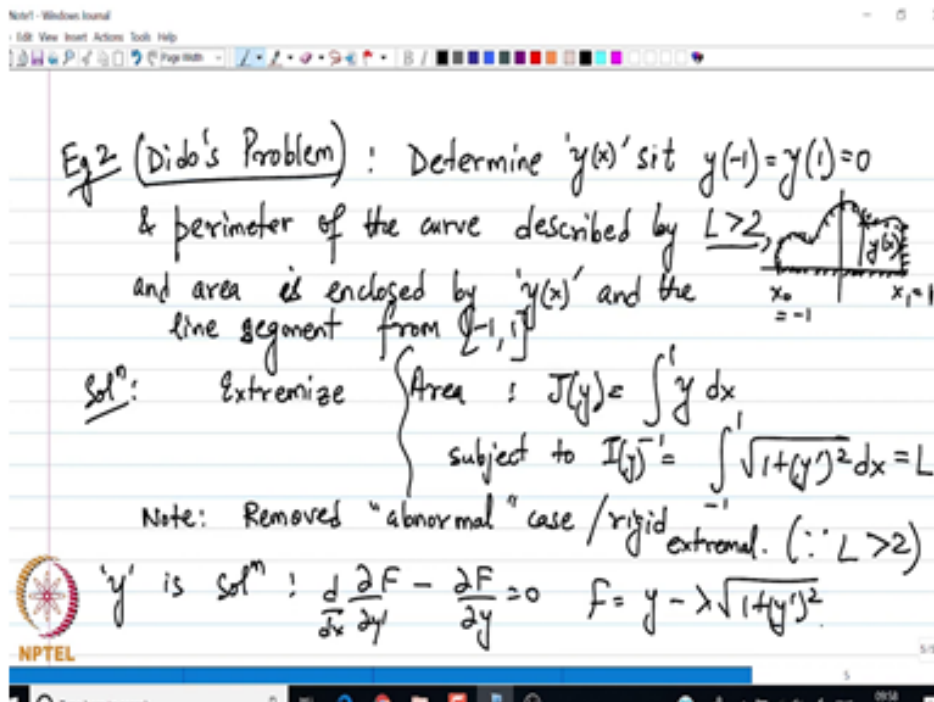 Note1 - Windows Journal
Edit View Insert Actions Tools Help
Page Width
Eg 2 (Dido's Problem) : Determine 'y(x)' s.t y(-1) = y(1) = 0
& perimeter of the curve described by L > 2,
and area is enclosed by 'y(x)' and the
line segment from [-1, 1]
y(x)
x₀ = -1
x₁ = 1
Solⁿ: Extremize { Area : J(y) = ∫_{-1}^{1} y dx
subject to I(y) = ∫_{-1}^{1} √(1+(y')²) dx = L
Note: Removed "abnormal" case / rigid extremal. (∵ L > 2)
'y' is solⁿ : d/dx ∂F/∂y' - ∂F/∂y = 0 f = y - λ√(1+(y')²).
NPTEL
5
09:58